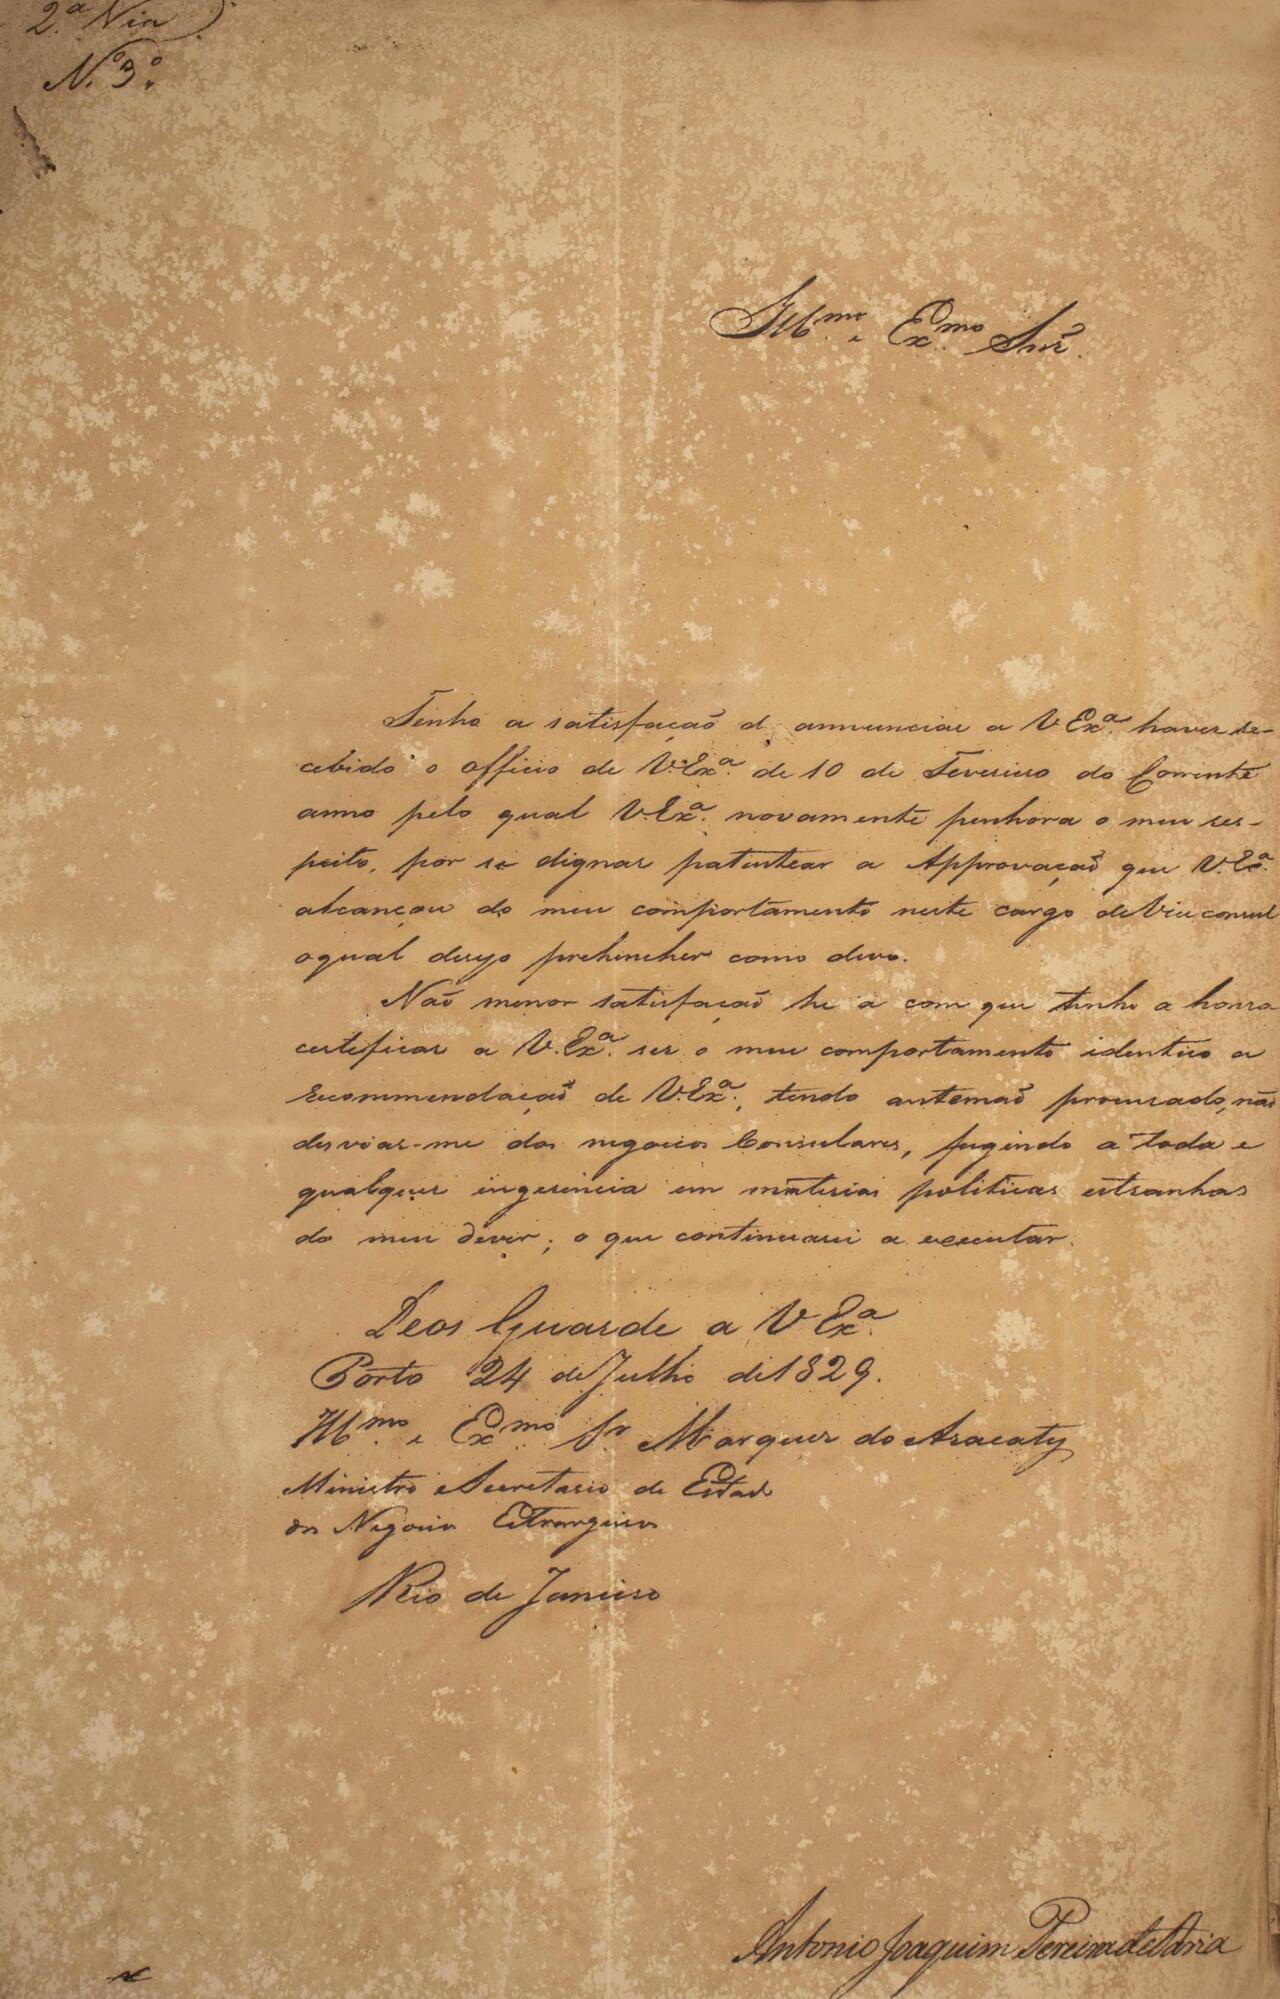 2.ª Via
N.º 3.º
Ill.mo e Ex.mo Snr.
Tenho a satisfação d, annunciar a V Ex.ª haver re-
cebido o officio de V.Ex.ª de 10 de Fevereiro do Corrente
anno pelo qual V.Ex.ª novamente penhora o meu res-
peito, por se dignar patentear a Approvação que V.Ex.ª
alcançou do meu comportamento neste cargo de Vice consul
o qual desejo prehencher como devo.
Não menor satisfação he a com que tenho a honra
certificar a V.Ex.ª ser o meu comportamento identico a
recommendação de V.Ex.ª, tendo antemaõ procurado, não
desviar-me dos negocios Consulares, fugindo a toda e
qualquer ingerencia em materias politicas estranhas
do meu dever; o que continuarei a executar.
Deos Guarde a V Ex.ª
Porto 24 de Julho de 1829.
Ill.mo e Ex.mo Sr Marques do Aracaty
Ministro e Secretario de Estado
dos Negocios Estrangeiros
Rio de Janeiro
Antonio Joaquim Pereira de